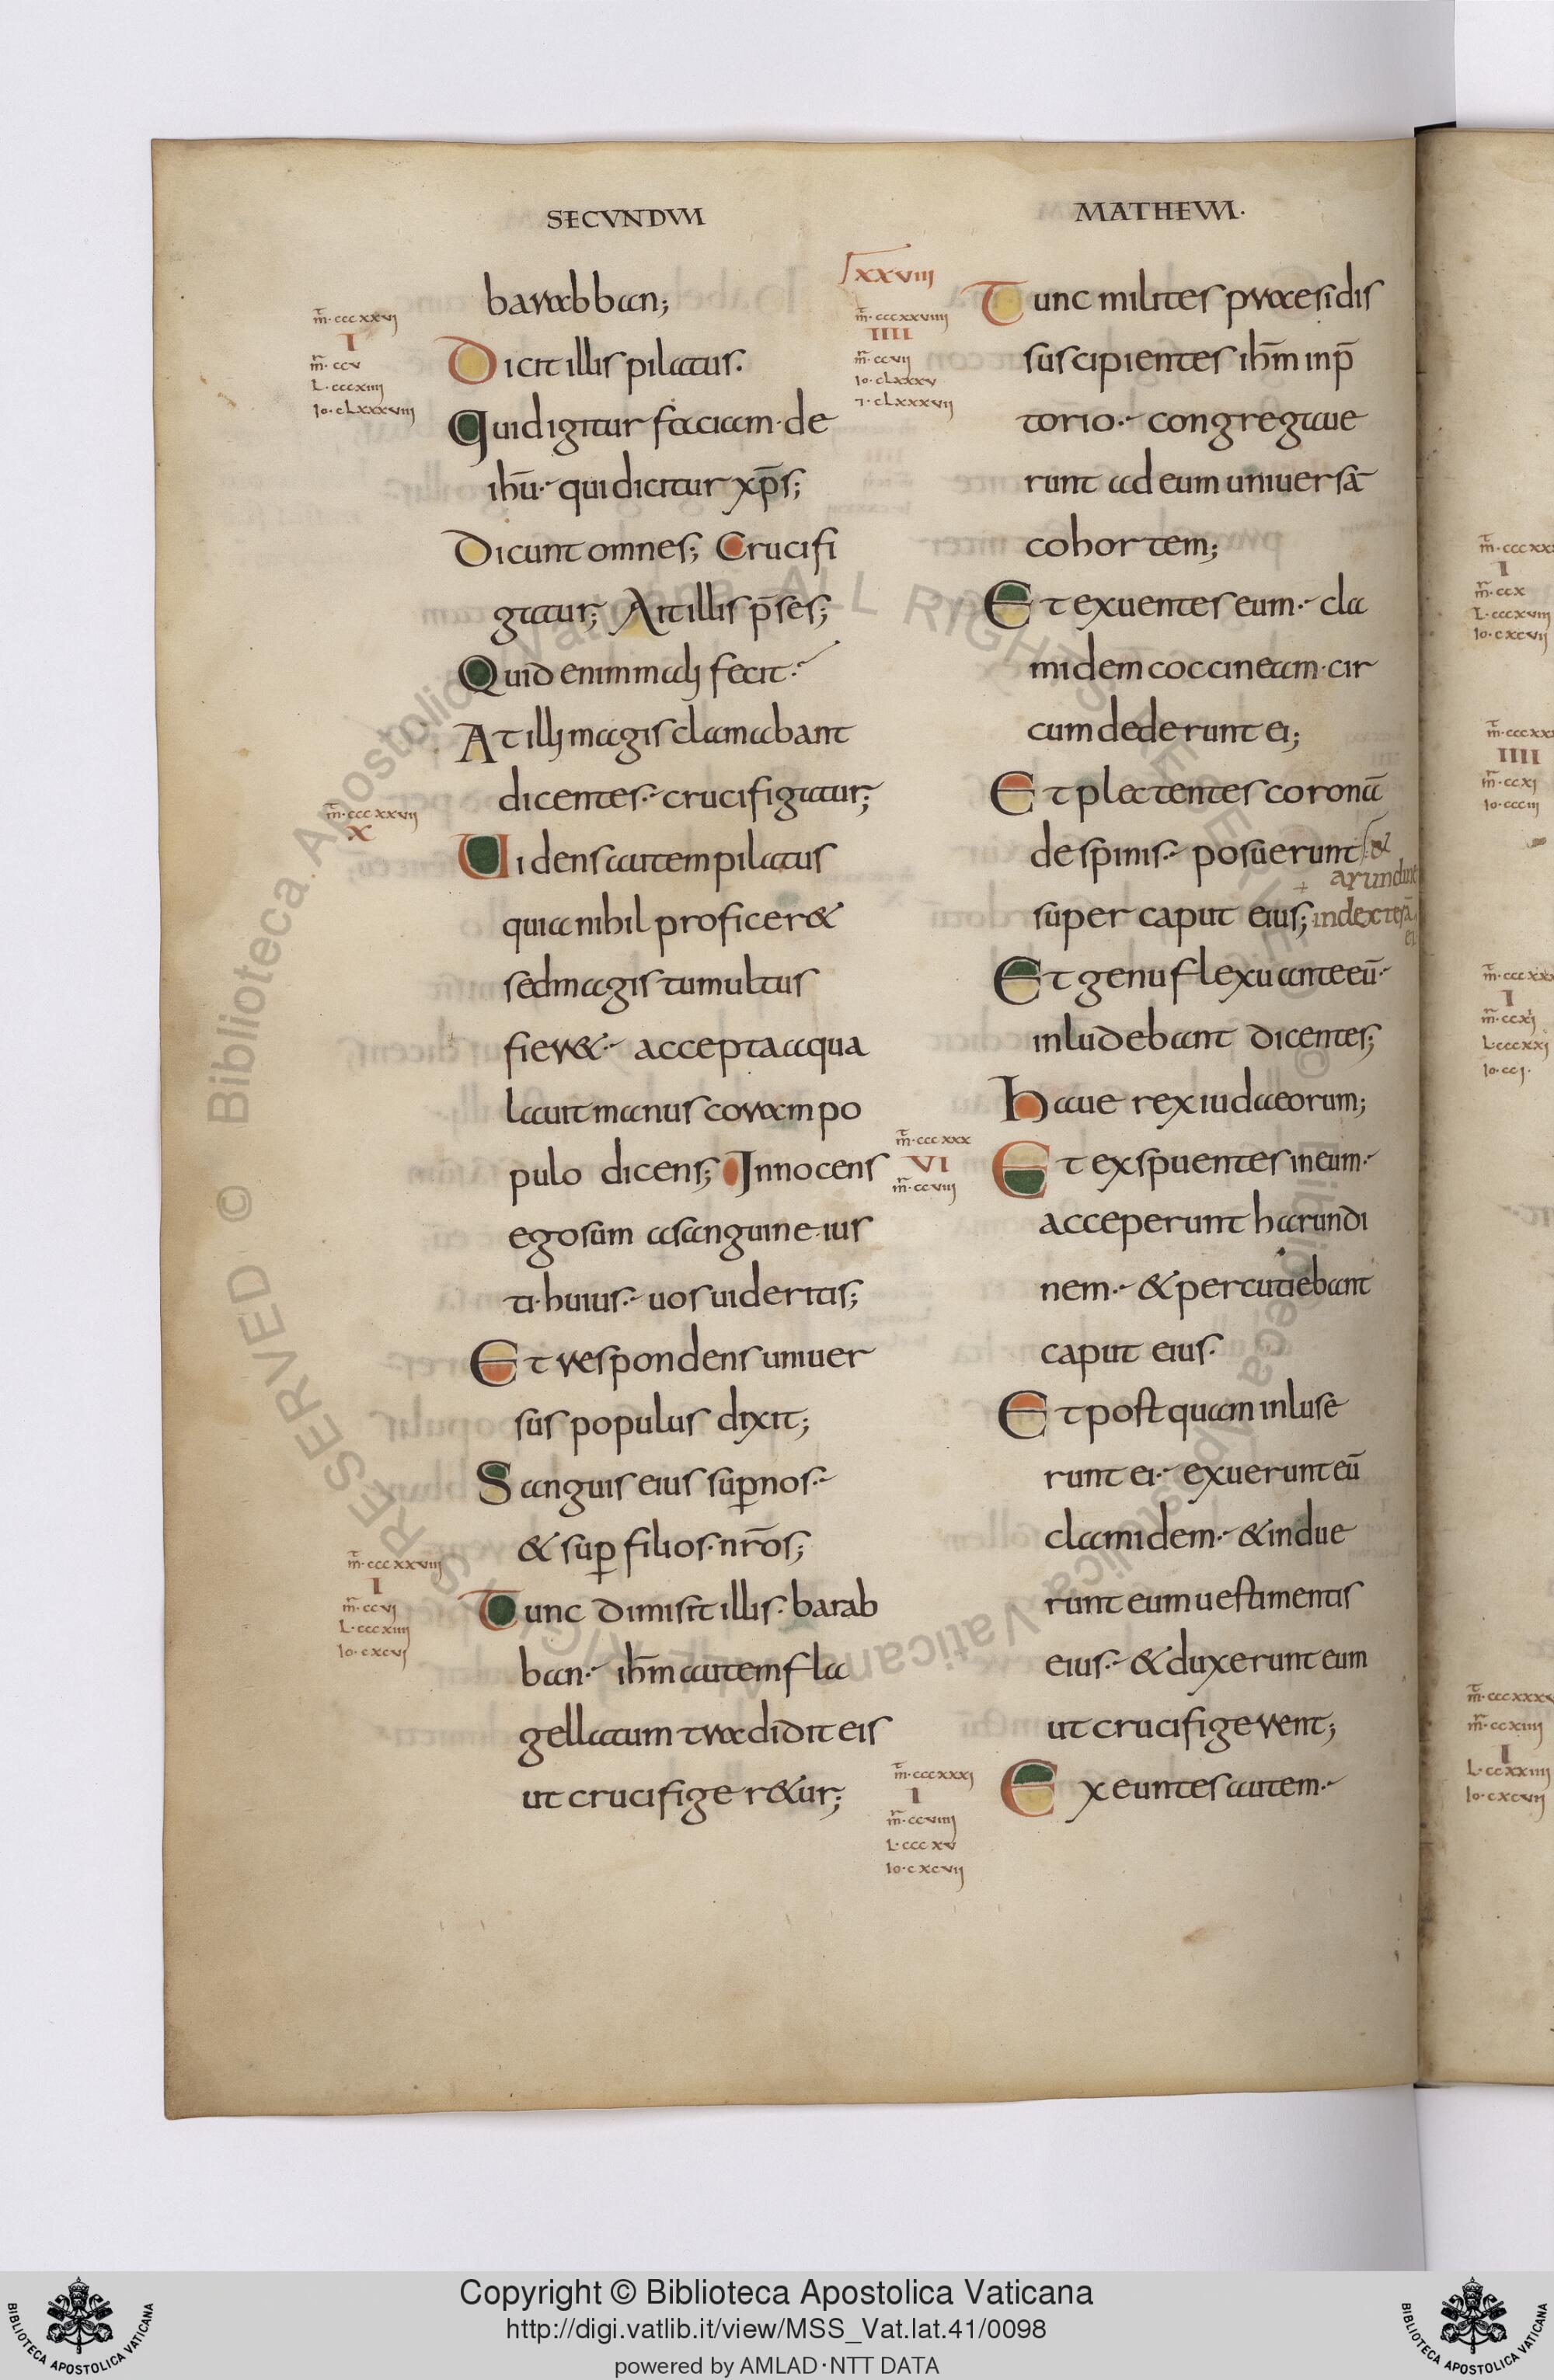 SECVNDVM
m̄·cccxxvi
I
m̄·ccv
L·cccxiiii
Io·clxxxviii
barabban;
Dicit illis pilatus.
Quid igitur faciam·de
ihū· qui dicitur xp̄s;
Dicunt omnes; Crucifi
gatur; Ait illis p̄ses;
Quid enim mali fecit·
At illi magis clamabant
dicentes· crucifigatur;
m̄·cccxxvii
X
Videns autem pilatus
quia nihil proficer&
sed magis tumultus
fier&· accepta aqua
lauit manus coram po
pulo dicens; Innocens
ego sum a sanguine ius
ti·huius· uos uideritis;
Et respondens uniuer
sus populus dixit;
Sanguis eius sup̱nos·
& sup̱ filios·nr̄os;
m̄·cccxxviii
I
m̄·ccvi
L·cccxiiii
Io·cxcvi
Tunc dimisit illis·barab
ban· ihm̄ autem fla
gellatum tradidit eis
ut crucifiger&ur;
MATHEVM·
XXVIII
m̄·cccxxviiii
IIII
m̄·ccvii
Io·clxxxv
⁊·clxxxvii
Tunc milites praesidis
suscipientes ihm̄ inp̄
torio· congregaue
runt ad eum uniuersā
cohortem;
Et exuentes eum· cla
midem coccineam·cir
cumdederunt ei;
Et plectentes coronā
de spinis· posuerunt
super caput eius;
& arundinē
in dextera
ei
Et genu flexu ante eū·
inludebant dicentes;
Haue rex iudaeorum;
m̄·cccxxx
VI
m̄·ccviii
Et exspuentes in eum·
acceperunt harundi
nem· & percutiebant
caput eius·
Et postquam inluse
runt ei· exuerunt eū
clamidem· & indue
runt eum uestimentis
eius· & duxerunt eum
ut crucifigerent;
m̄·cccxxxi
I
m̄·ccviiii
L·cccxv
Io·cxcvii
Exeuntes autem·
m̄·cccxx
I
m̄·ccx
L·cccxviii
Io·cxcvii
m̄·cccxxx
IIII
m̄·ccxi
Io·cciii
m̄·cccxxx
I
m̄·ccxi
L·cccxxi
Io·cci·
m̄·cccxxxv
m̄·ccxiiii
I
L·ccxxiiii
Io·cxcvii
© Biblioteca Apostolica Vaticana ALL RIGHTS RESERVED
© Biblioteca Apostolica Vaticana ALL RIGHTS RESERVED
Copyright © Biblioteca Apostolica Vaticana
http://digi.vatlib.it/view/MSS_Vat.lat.41/0098
powered by AMLAD·NTT DATA
BIBLIOTECA APOSTOLICA VATICANA
BIBLIOTECA APOSTOLICA VATICANA